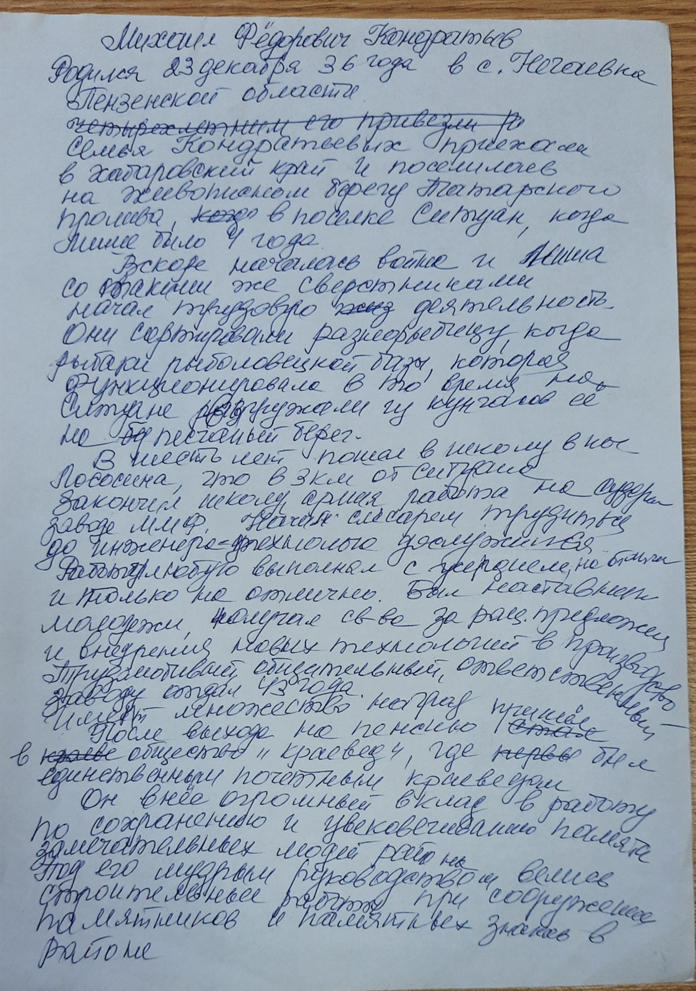 Михаил Фёдорович Кондратьев
Родился 23 декабря 36 года в с. Нечаевка
Пензенской области
четырехлетним его привезли в
Семья Кондратьевых приехала
в Хабаровский край и поселилась
на живописном берегу Татарского
пролива, когда в поселке Ситуан, когда
Мише было 4 года
Вскоре началась война и Миша
со такими же сверстниками
начал трудовую деятельность.
Они сортировали разнорыбицу, когда
рыбаки рыболовецкой базы, которая
функционировала в то время на
Ситуане разгружали из кунгасов её
на песчаный берег.
В шесть лет пошел в школу в пос
Лососина, что в 3 км от Ситуана
Закончил школу армия работа на судорем
заводе ММФ. Начал слесарем трудиться
до инженера-технолога дослужился
Работу любую выполнял с усердием, на отлично
и только на отлично. Был наставник
молодежи, получал св-ва за рац. предложен
и внедрения новых технологий в производство
Трудолюбивый общительный, ответственный
Заводу отдал 43 года.
Имеет множество наград
После выхода на пенсию пришел стал
в краеве общество "краевед", где первы был
единственным почетным краеведом
Он внёс огромный вклад в работу
по сохранению и увековечиванию памяти
замечательных людей района
Под его мудрым руководством велись
строительные работы при сооружении
памятников и памятных знаков в
районе